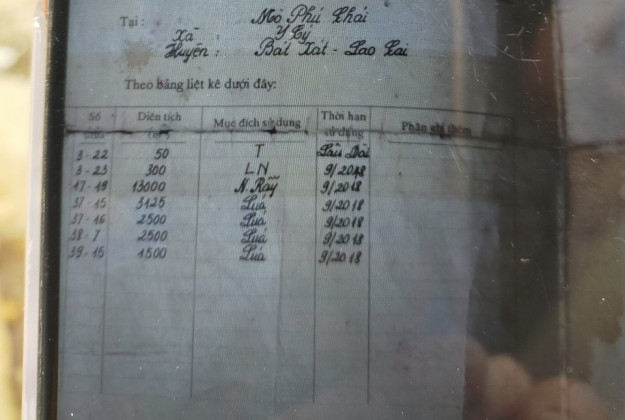 Tại : Mò Phú Chải
Xã : Y Tý
Huyện : Bát Xát - Lào Cai
Theo bảng liệt kê dưới đây:
Số Diện tích Mục đích sử dụng Thời hạn sử dụng Phần ghi thêm
3-22 50 T Lâu Dài
3-23 300 LN 9/2048
17-19 13000 N. Rẫy 9/2018
37-15 3125 Lúa 9/2018
37-16 2500 Lúa 9/2018
38-7 2500 Lúa 9/2018
39-15 1500 Lúa 9/2018